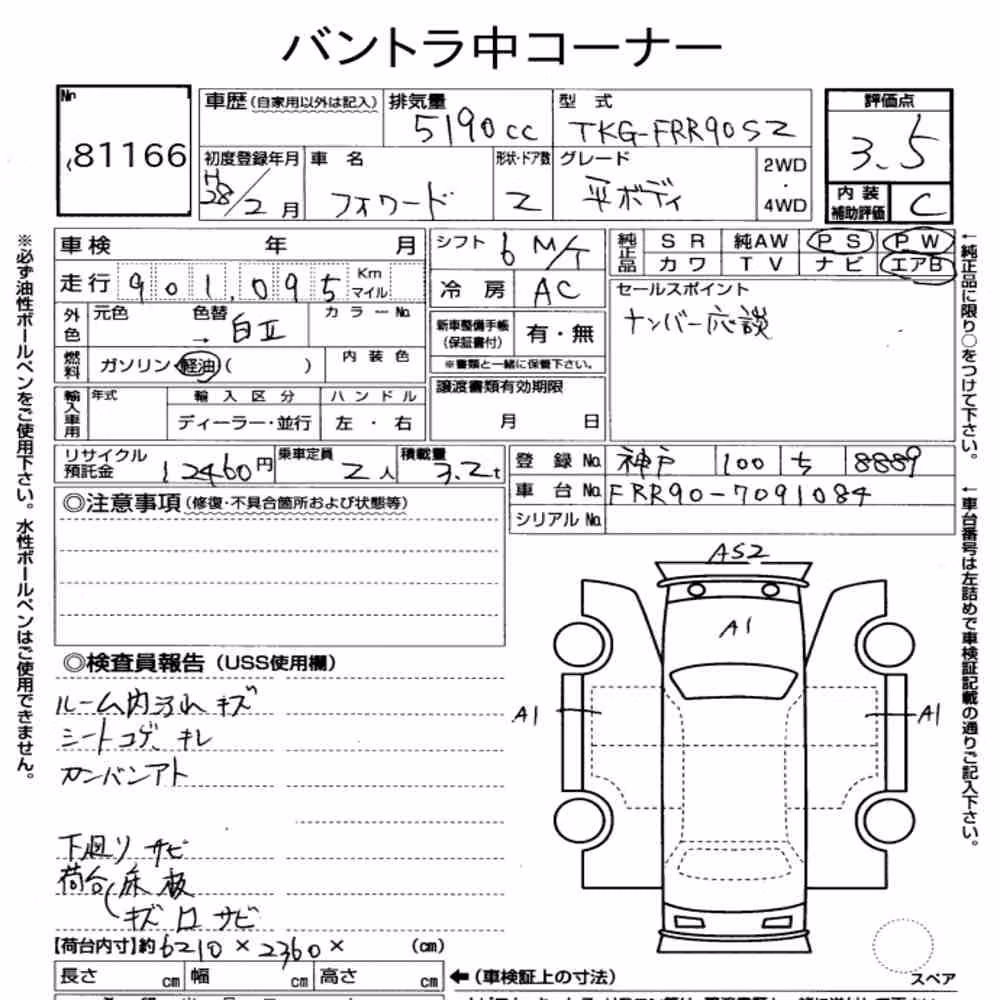 バントラ中コーナー
No.
81166
車歴(自家用以外は記入)
排気量
5190cc
型式
TKG-FRR90S2
評価点
3.5
初度登録年月
H28/2月
車名
フォワード
形状・ドア数
2
グレード
平ボディ
2WD
・
4WD
内装補助評価
C
車検 年 月
シフト
6 M/T
純正品
SR 純AW PS PW
カワ TV ナビ エアB
走行 901,095 Km マイル
冷房
AC
セールスポイント
ナンバー応談
外色
元色 色替 → 白亜 カラーNo.
新車整備手帳(保証書付)
有・無
※書類と一緒に保管下さい。
燃料
ガソリン・軽油( )
内装色
譲渡書類有効期限
月 日
輸入車用
年式
輸入区分 ハンドル
ディーラー・並行 左・右
リサイクル預託金
12460円
乗車定員
2人
積載量
3.2t
登録No.
神戸 100 ち 8889
車台No.
FRR90-7091084
シリアルNo.
◎注意事項(修復・不具合箇所および状態等)
◎検査員報告(USS使用欄)
ルーム内ヨゴレ キズ
シートコゲ、キレ
カンバンアト
下廻り サビ
荷台(床板
キズ 口 サビ
【荷台内寸】約6210×2360× (cm)
長さ cm 幅 cm 高さ cm
←(車検証上の寸法)
AS2
A1
A1
A1
スペア
※必ず油性ボールペンをご使用下さい。水性ボールペンはご使用できません。
←純正品に限り○をつけて下さい。
←車台番号は左詰めで車検証記載の通りご記入下さい。